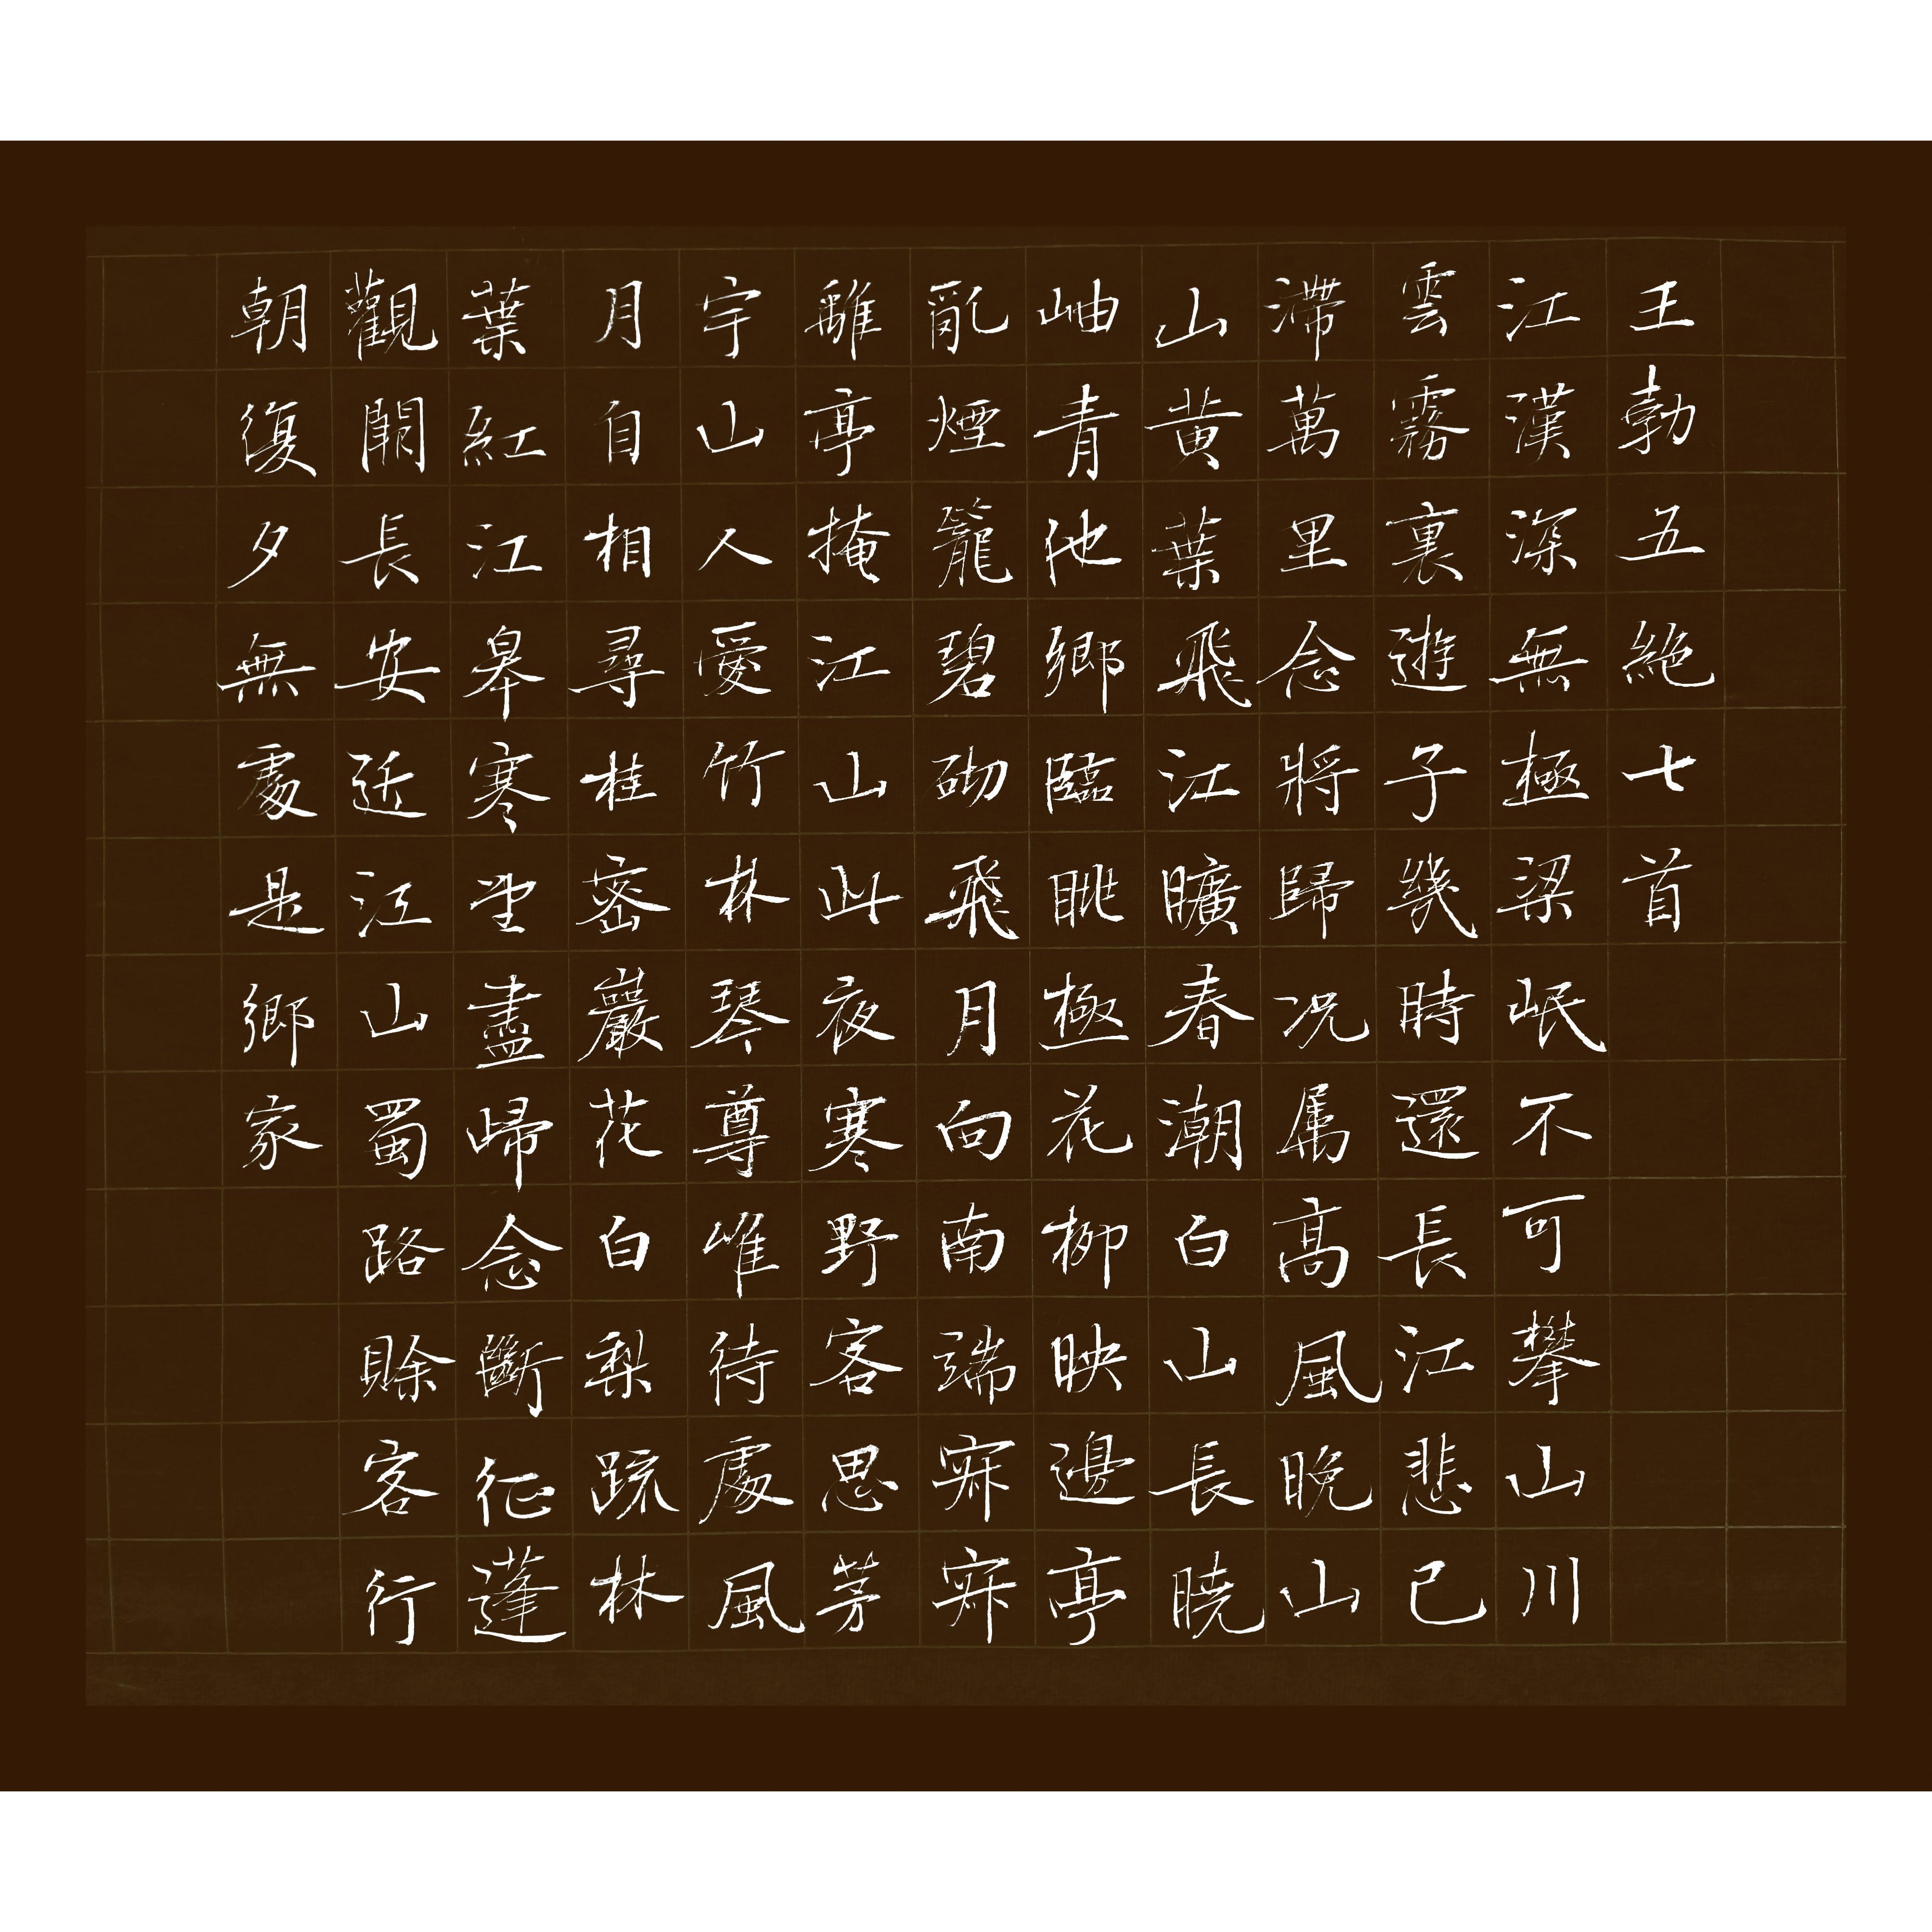 王勃五絕七首
江漢深無極梁岷不可攀山川
雲霧裏遊子幾時還長江悲已
滯萬里念將歸況屬高風晚山
山黃葉飛江曠春潮白山長曉
岫青他鄉臨眺極花柳映邊亭
亂煙籠碧砌飛月向南端寂寂
離亭掩江山此夜寒野客思茅
宇山人愛竹林琴尊唯待處風
月自相尋桂密巖花白梨疏林
葉紅江皋寒望盡歸念斷征蓬
觀闕長安近江山蜀路賒客行
朝復夕無處是鄉家